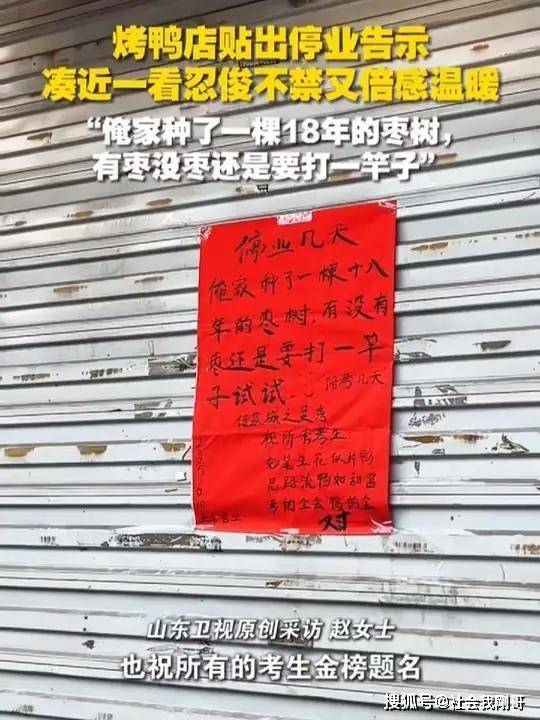 烤鸭店贴出停业告示
凑近一看忍俊不禁又倍感温暖
“俺家种了一棵18年的枣树，
有枣没枣还是要打一竿子”
停业几天
俺家种了一棵十八
年的枣树，有没有
枣还是要打一竿
子试试.
陪考几天
祝所有考生
妙笔生花似片鸭
思路流畅如甜酱
考的全会"鸭"的全
对
山东卫视原创采访 赵女士
也祝所有的考生金榜题名
搜狐号@社会我刚哥